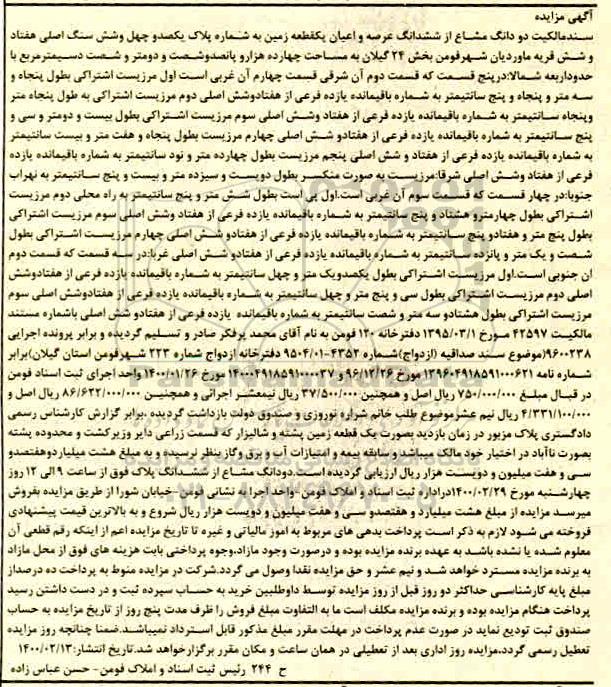 آگهی مزایده
سندمالکیت دو دانگ مشاع از ششدانگ عرصه و اعیان یکقطعه زمین به شماره پلاک یکصدو چهل وشش سنگ اصلی هفتاد
و شش قریه ماوردیان شهرفومن بخش ۲۴ گیلان به مساحت چهارده هزارو پانصدوشصت و دومتر و شصت دسیمترمربع با
حدوداربعه شمالا:درپنج قسمت که قسمت دوم آن شرقی قسمت چهارم آن غربی است اول مرزیست اشتراکی بطول پنجاه و
سه متر و پنجاه و پنج سانتیمتر به شماره باقیمانده یازده فرعی از هفتادوشش اصلی دوم مرزیست اشتراکی به طول پنجاه متر
وپنجاه سانتیمتر به شماره باقیمانده یازده فرعی از هفتاد وشش اصلی سوم مرزیست اشتراکی بطول بیست و دومتر و سی و
پنج سانتیمتر به شماره باقیمانده یازده فرعی از هفتادو شش اصلی چهارم مرزیست بطول پنجاه و هفت متر و بیست سانتیمتر
به شماره باقیمانده یازده فرعی از هفتاد و شش اصلی پنجم مرزیست بطول چهارده متر و نود سانتیمتر به شماره باقیمانده یازده
فرعی از هفتاد وشش اصلی شرقا:مرزیست به صورت منکسر بطول دویست و سیزده متر و بیست و پنج سانتیمتر به نهراب
جنوبا:در چهار قسمت که قسمت سوم آن غربی است.اول پی است بطول شش متر و پنج سانتیمتر به راه محلی دوم مرزیست
اشتراکی بطول چهارمترو هشتاد و پنج سانتیمتر به شماره باقیمانده یازده فرعی از هفتاد وشش اصلی سوم مرزیست اشتراکی
بطول پنج متر و هفتادو پنج سانتیمتر به شماره باقیمانده یازده فرعی از هفتادو شش اصلی چهارم مرزیست اشتراکی بطول
شصت و یک متر و پانزده سانتیمتر به شماره باقیمانده یازده فرعی از هفتادو شش اصلی غربا:در سه قسمت که قسمت دوم
ان جنوبی است.اول مرزیست اشتراکی بطول یکصدویک متر و چهل سانتیمتر به شماره باقیمانده یازده فرعی از هفتادوشش
اصلی دوم مرزیست اشتراکی بطول سی و پنج متر و چهل سانتیمتر به شماره باقیمانده یازده فرعی از هفتادوشش اصلی سوم
مرزیست اشتراکی بطول هشتادو سه متر و شصت سانتیمتر به شماره باقیمانده یازده فرعی از هفتادو شش اصلی باشماره مستند
مالکیت ۴۲۵۹۷ مورخ ۱۳۹۵/۰۳/۱ دفترخانه ۱۲۰ فومن به نام آقای محمد پرفکر صادر و تسلیم گردیده و برابر پرونده اجرایی
۹۶۰۰۲۳۸(موضوع سند صداقیه (ازدواج)شماره ۴۳۵۲-۹۵۰۴۰۱ دفترخانه ازدواج شماره ۲۲۳ شهرفومن استان گیلان)برابر
شماره نامه ۱۳۹۶۰۴۹۱۸۵۹۱۰۰۰۶۲۱ مورخ ۹۶/۱۲/۲۶ و ۱۴۰۰۰۴۹۱۸۵۹۱۰۰۰۰۳۷ مورخ ۱۴۰۰/۰۱/۲۶ واحد اجرای ثبت اسناد فومن
در قبال مبلغ ۷۵۰/۰۰۰/۰۰۰ ریال اصل و همچنین ۳۷/۵۰۰/۰۰۰ ریال نیمعشر اجرائی و همچنین ۸۶/۶۲۲/۰۰۰/۰۰۰ ریال اصل و
۴/۳۳۱/۱۰۰/۰۰۰ ریال نیم عشرموضوع طلب خانم شراره نوروزی و صندوق دولت بازداشت گردیده ،برابر گزارش کارشناس رسمی
دادگستری پلاک مزبور در زمان بازدید بصورت یک قطعه زمین پشته و شالیزار که قسمت زراعی دایر وزیرکشت و محدوده پشته
بصورت ناآباد در اختیار خود مالک میباشدو سابقه بیمه و امتیازات آب و برق وگاز بنظر نرسیده و به مبلغ هشت میلیاردوهفتصدو
سی و هفت میلیون و دویست هزار ریال ارزیابی گردیده است.دودانگ مشاع از ششدانگ پلاک فوق از ساعت ۹ الی ۱۲ روز
چهارشنبه مورخ ۱۴۰۰/۰۲/۲۹دراداره ثبت اسناد و املاک فومن -واحد اجرا به نشانی فومن- خیابان شورا از طریق مزایده بفروش
میرسد مزایده از مبلغ هشت میلیارد و هفتصدو سی و هفت میلیون و دویست هزار ریال شروع و به بالاترین قیمت پیشنهادی
فروخته می شود لازم به ذکر است پرداخت بدهی های مربوط به اموز مالیاتی و غیره تا تاریخ مزایده اعم از اینکه رقم قطعی آن
معلوم شده یا نشده باشد به عهده برنده مزایده بوده و درصورت وجود مازاد،وجوه پرداختی بابت هزینه های فوق از محل مازاد
به برنده مزایده مسترد خواهد شد و نیم عشر و حق مزایده نقدا وصول می گردد.شرکت در مزایده منوط به پرداخت ده درصداز
مبلغ پایه کارشناسی حداکثر دو روز قبل از روز مزایده توسط داوطلبین خرید به حساب سپرده ثبت و در دست داشتن رسید
پرداخت هنگام مزایده بوده و برنده مزایده مکلف است ما به التفاوت مبلغ فروش را ظرف مدت پنج روز از تاریخ مزایده به حساب
صندوق ثبت تودیع نماید در صورت عدم پرداخت در مهلت مقرر مبلغ مذکور قابل استرداد نمیباشد.ضمنا چنانچه روز مزایده
تعطیل رسمی گردد،مزایده روز اداری بعد از تعطیلی در همان ساعت و مکان مقرر برگزارخواهد شد.تاریخ انتشار:۱۴۰۰/۰۲/۱۳
ح ۲۴۴ رئیس ثبت اسناد و املاک فومن- حسن عباس زاده